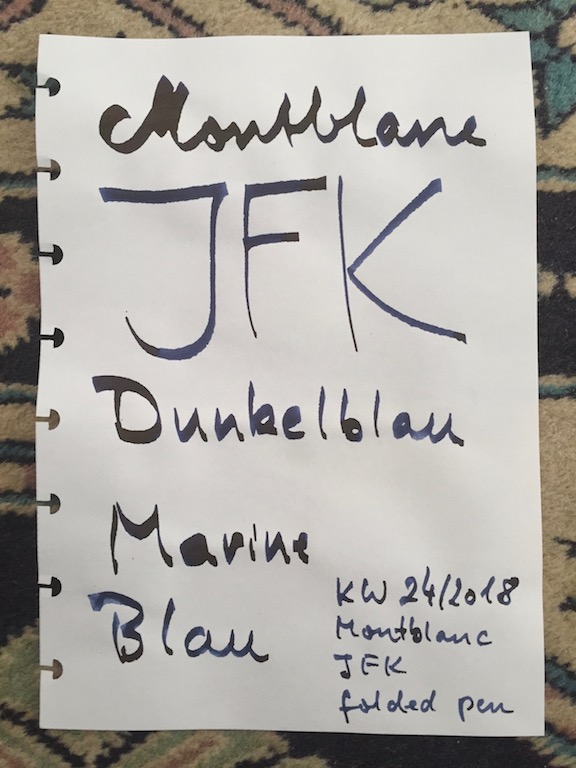 Montblanc
JFK
Dunkelblau
Marine
Blau
KW 24/2018
Montblanc
JFK
folded pen